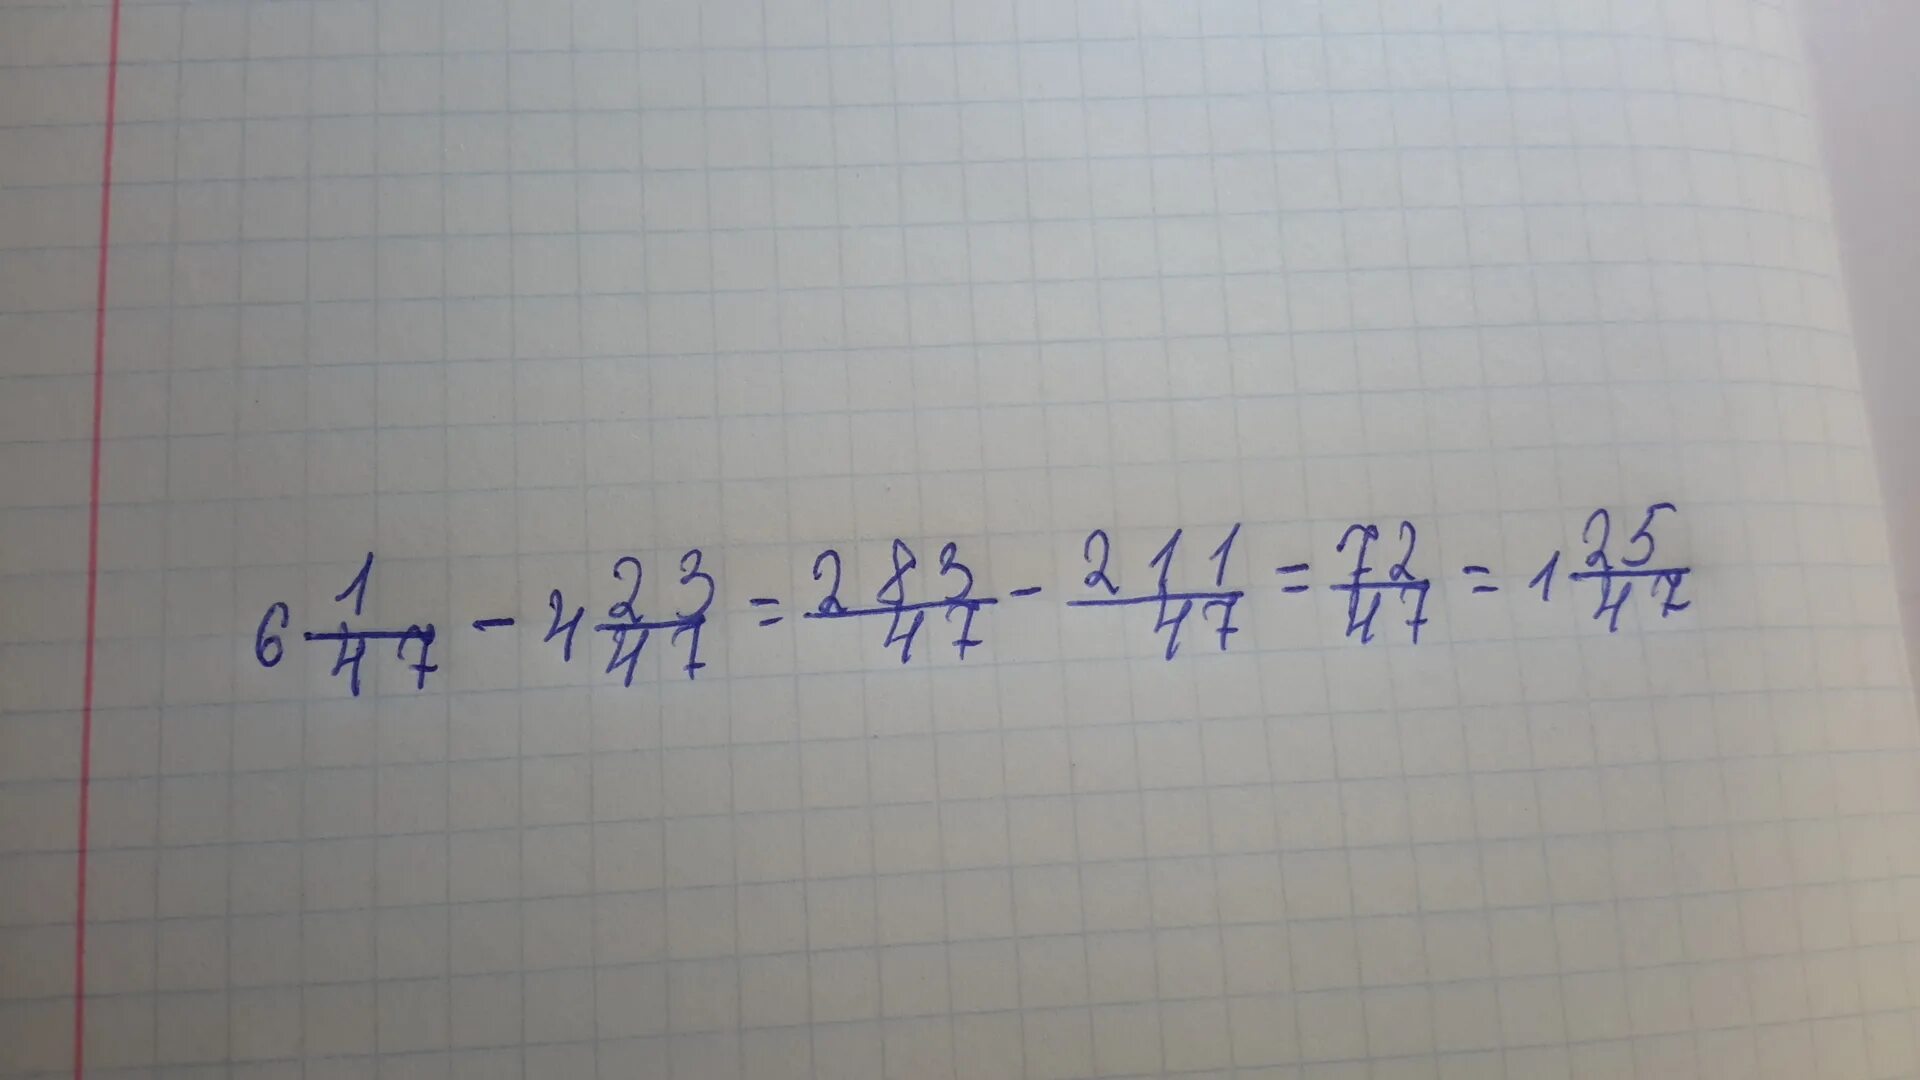 6 1/47 - 4 23/47 = 283/47 - 211/47 = 72/47 = 1 25/47